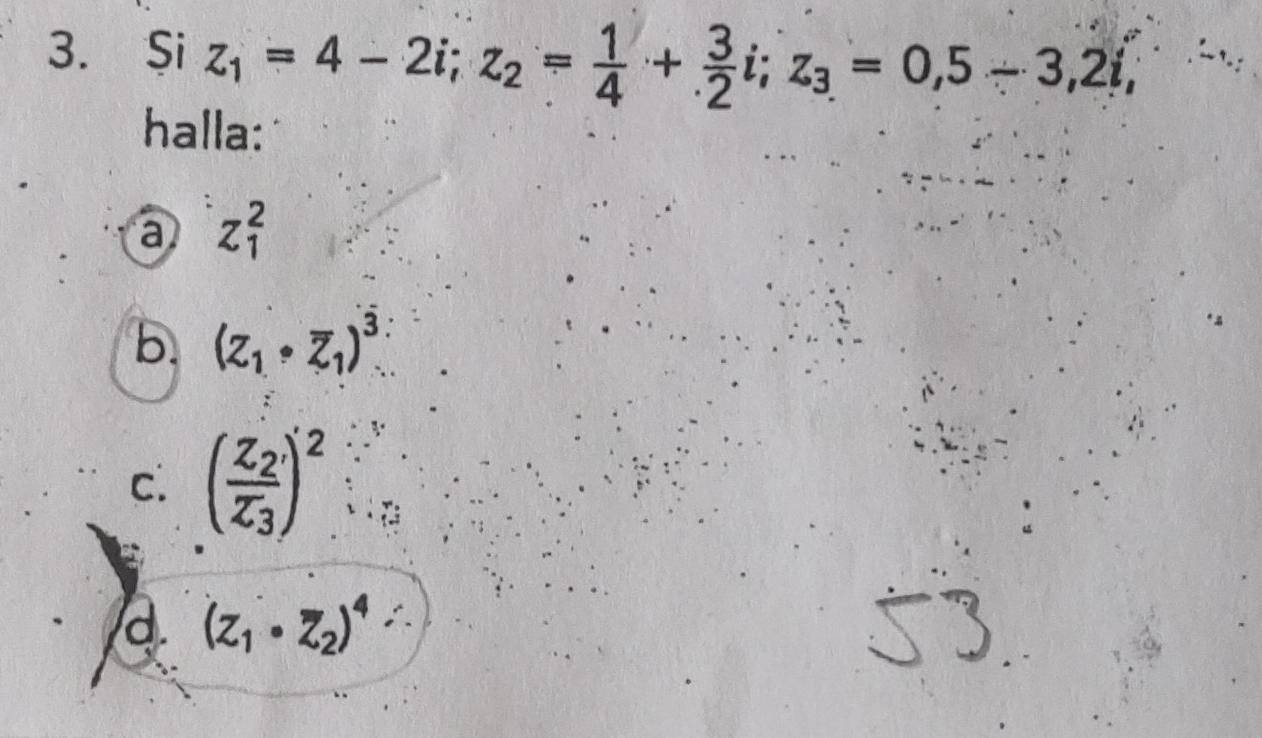 3. Si z₁ = 4 − 2i; z₂ = 1/4 + 3/2 i; z₃ = 0,5 − 3,2i,
halla:
a. z₁²
b. (z₁ • z̅₁)³
c. (z₂/z̅₃)²
d. (z₁ • z̅₂)⁴
53